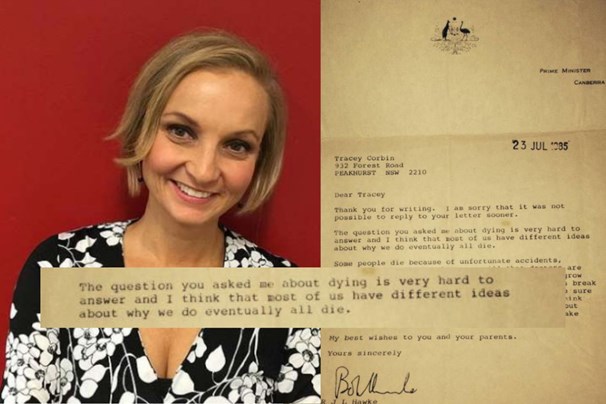 PRIME MINISTER
CANBERRA
23 JUL 1985
Tracey Corbin
932 Forest Road
PEAKHURST NSW 2210
Dear Tracey
Thank you for writing. I am sorry that it was not
possible to reply to your letter sooner.
The question you asked me about dying is very hard to
answer and I think that most of us have different ideas
about why we do eventually all die.
Some people die because of unfortunate accidents,
are
grow
break
sure
The question you asked me about dying is very hard to
answer and I think that most of us have different ideas
about why we do eventually all die.
My best wishes to you and your parents.
Yours sincerely
R J L Hawke